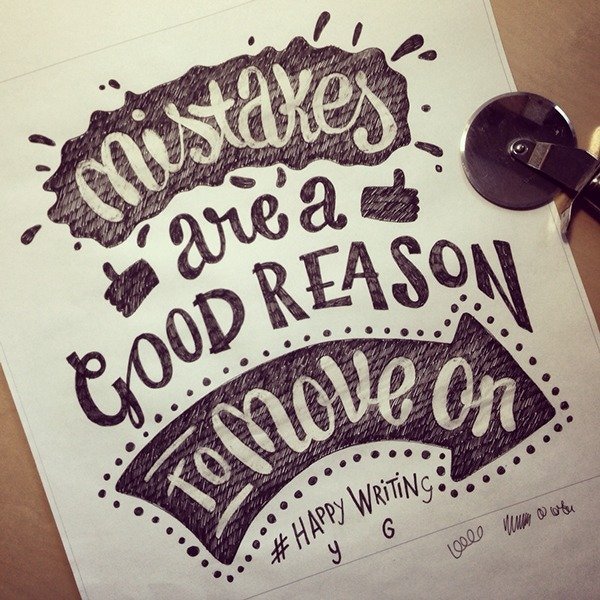 Mistakes
are a
GOOD REASON
To Move On
#HAPPY WRITING
y G